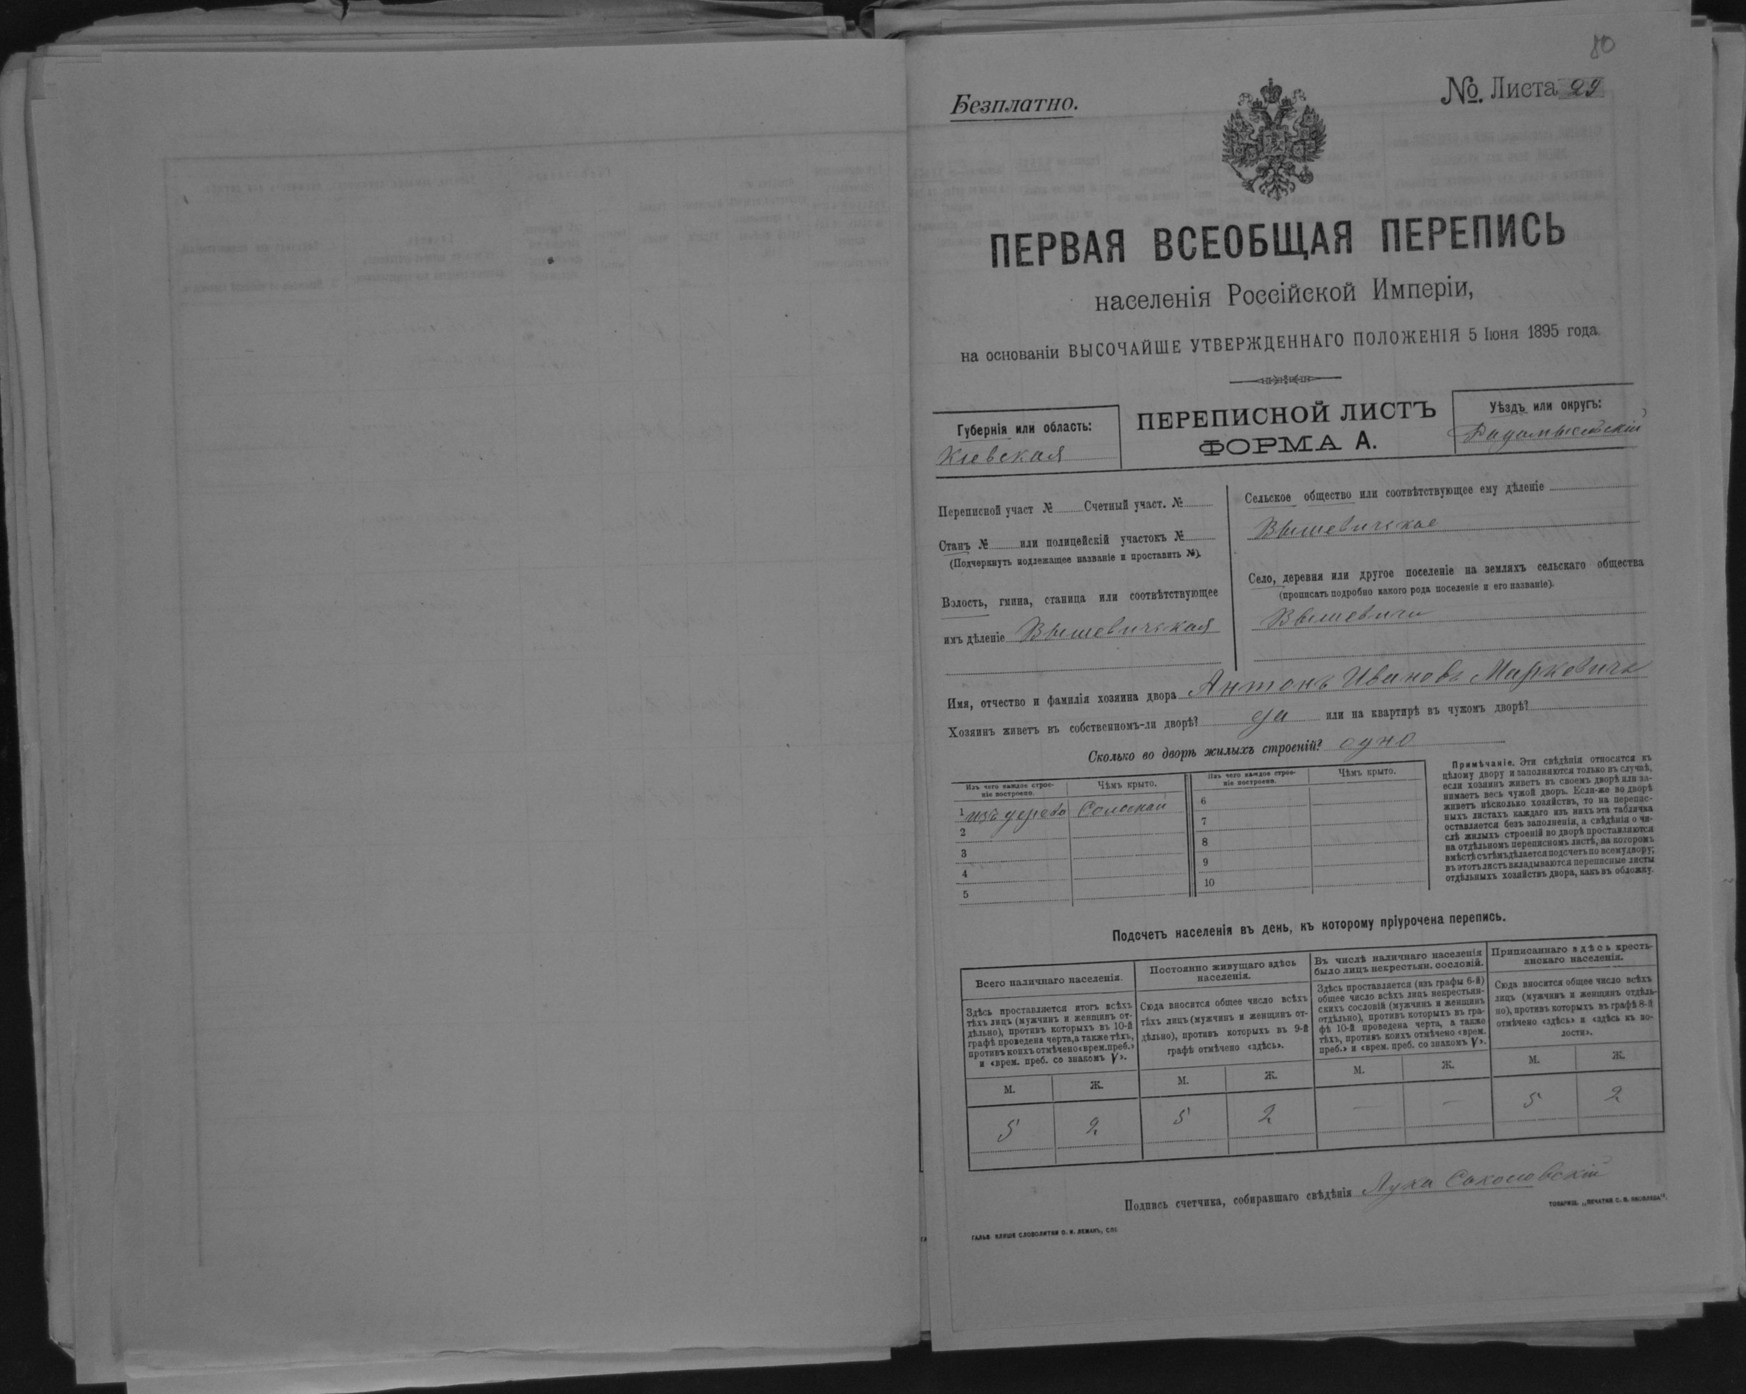 80
Безплатно.
№. Листа 29
ПЕРВАЯ ВСЕОБЩАЯ ПЕРЕПИСЬ
населенія Россійской Имперіи,
на основаніи ВЫСОЧАЙШЕ УТВЕРЖДЕННАГО ПОЛОЖЕНІЯ 5 Іюня 1895 года.
Губернія или область:
Кіевская
ПЕРЕПИСНОЙ ЛИСТЪ
ФОРМА А.
Уѣздъ или округъ:
Радомысльскій
Переписной участ № Счетный участ. №
Станъ № или полицейскій участокъ №
(Подчеркнуть подлежащее названіе и проставить №).
Волость, гмина, станица или соотвѣтствующее
имъ дѣленіе Вышевичская
Сельское общество или соотвѣтствующее ему дѣленіе
Вышевичское
Село, деревня или другое поселеніе на земляхъ сельскаго общества
(прописать подробно какого рода поселеніе и его названіе).
Вышевичи
Имя, отчество и фамилія хозяина двора Антонъ Ивановъ Марковичъ
Хозяинъ живетъ въ собственномъ-ли дворѣ? да или на квартирѣ въ чужомъ дворѣ?
Сколько во дворѣ жилыхъ строеній? одно
Изъ чего каждое строе-
ніе построено.
Чѣмъ крыто.
1 изъ дерева Соломой
2
3
4
5
Изъ чего каждое строе-
ніе построено.
Чѣмъ крыто.
6
7
8
9
10
Примѣчаніе. Эти свѣдѣнія относятся къ
цѣлому двору и заполняются только въ случаѣ,
если хозяинъ живетъ въ своемъ дворѣ или за-
нимаетъ весь чужой дворъ. Если-же во дворѣ
живетъ нѣсколько хозяйствъ, то на перепис-
ныхъ листахъ каждаго изъ нихъ эта табличка
оставляется безъ заполненія, а свѣдѣнія о чи-
слѣ жилыхъ строеній во дворѣ проставляются
на отдѣльномъ переписномъ листѣ, на которомъ
вмѣстѣ съ тѣмъ дѣлается подсчетъ по всему двору;
въ этотъ листъ вкладываются переписные листы
отдѣльныхъ хозяйствъ двора, какъ въ обложку.
Подсчетъ населенія въ день, къ которому пріурочена перепись.
Всего наличнаго населенія.
Здѣсь проставляется итогъ всѣхъ
тѣхъ лицъ (мужчинъ и женщинъ от-
дѣльно), противъ которыхъ въ 10-й
графѣ проведена черта, а также тѣхъ,
противъ коихъ отмѣчено «врем. преб.»
и «врем. преб. со знакомъ V».
М. Ж.
5 2
Постоянно живущаго здѣсь
населенія.
Сюда вносится общее число всѣхъ
тѣхъ лицъ (мужчинъ и женщинъ от-
дѣльно), противъ которыхъ въ 9-й
графѣ отмѣчено «здѣсь».
М. Ж.
5 2
Въ числѣ наличнаго населенія
было лицъ некрестьян. сословій.
Здѣсь проставляется (изъ графы 6-й)
общее число всѣхъ лицъ некрестьян-
скихъ сословій (мужчинъ и женщинъ
отдѣльно), противъ которыхъ въ гра-
фѣ 10-й проведена черта, а также
тѣхъ, противъ коихъ отмѣчено «врем.
преб.» и «врем. преб. со знакомъ V».
М. Ж.
— —
Приписаннаго здѣсь кресть-
янскаго населенія.
Сюда вносится общее число всѣхъ
лицъ (мужчинъ и женщинъ отдѣль-
но), противъ которыхъ въ графѣ 8-й
отмѣчено «здѣсь» и «здѣсь въ во-
лости».
М. Ж.
5 2
Подпись счетчика, собиравшаго свѣдѣнія Лука Соколовскій
ГАЛЬВ. КЛИШЕ СЛОВОЛИТНИ О. И. ЛЕМАНЪ, СПБ
ТОВАРИЩ. „ПЕЧАТНЯ С. П. ЯКОВЛЕВА“.